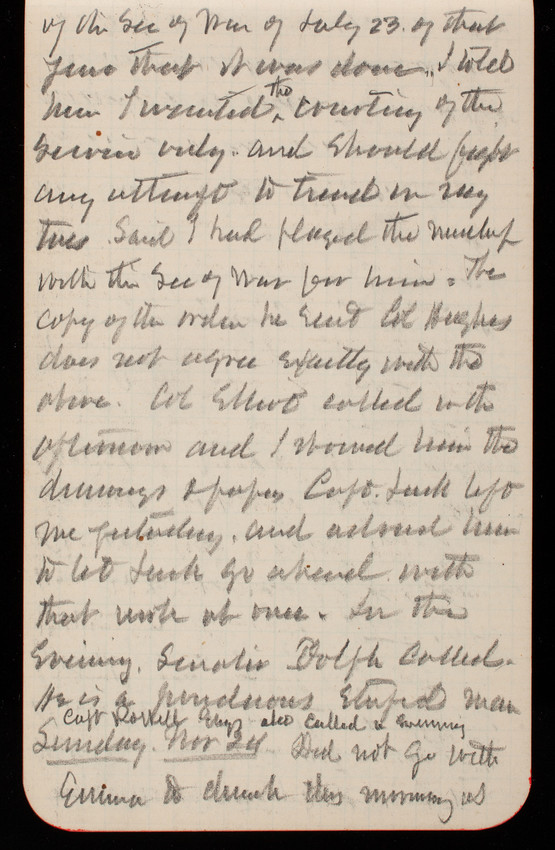 of the Sec of War of July 23. of that
year that it was done, I told
him I wanted the courtesy of the
service only. and should fight
any attempt to tread on my
toes. Said I had played the
with the Sec of War for him. The
copy of the order he sent Col Hughes
does not agree exactly with the
above. Col Elliot called in the
afternoon and I showed him the
drawings & papers Capt. Lusk left
me yesterday. and advised him
to let Lusk go ahead with
that work at once. In the
Evening. Senator Dolph called.
He is a ponderous stupid man
Capt Rossell Engs also called in evening
Sunday. Nov 24. Did not go with
Emma to church this morning as